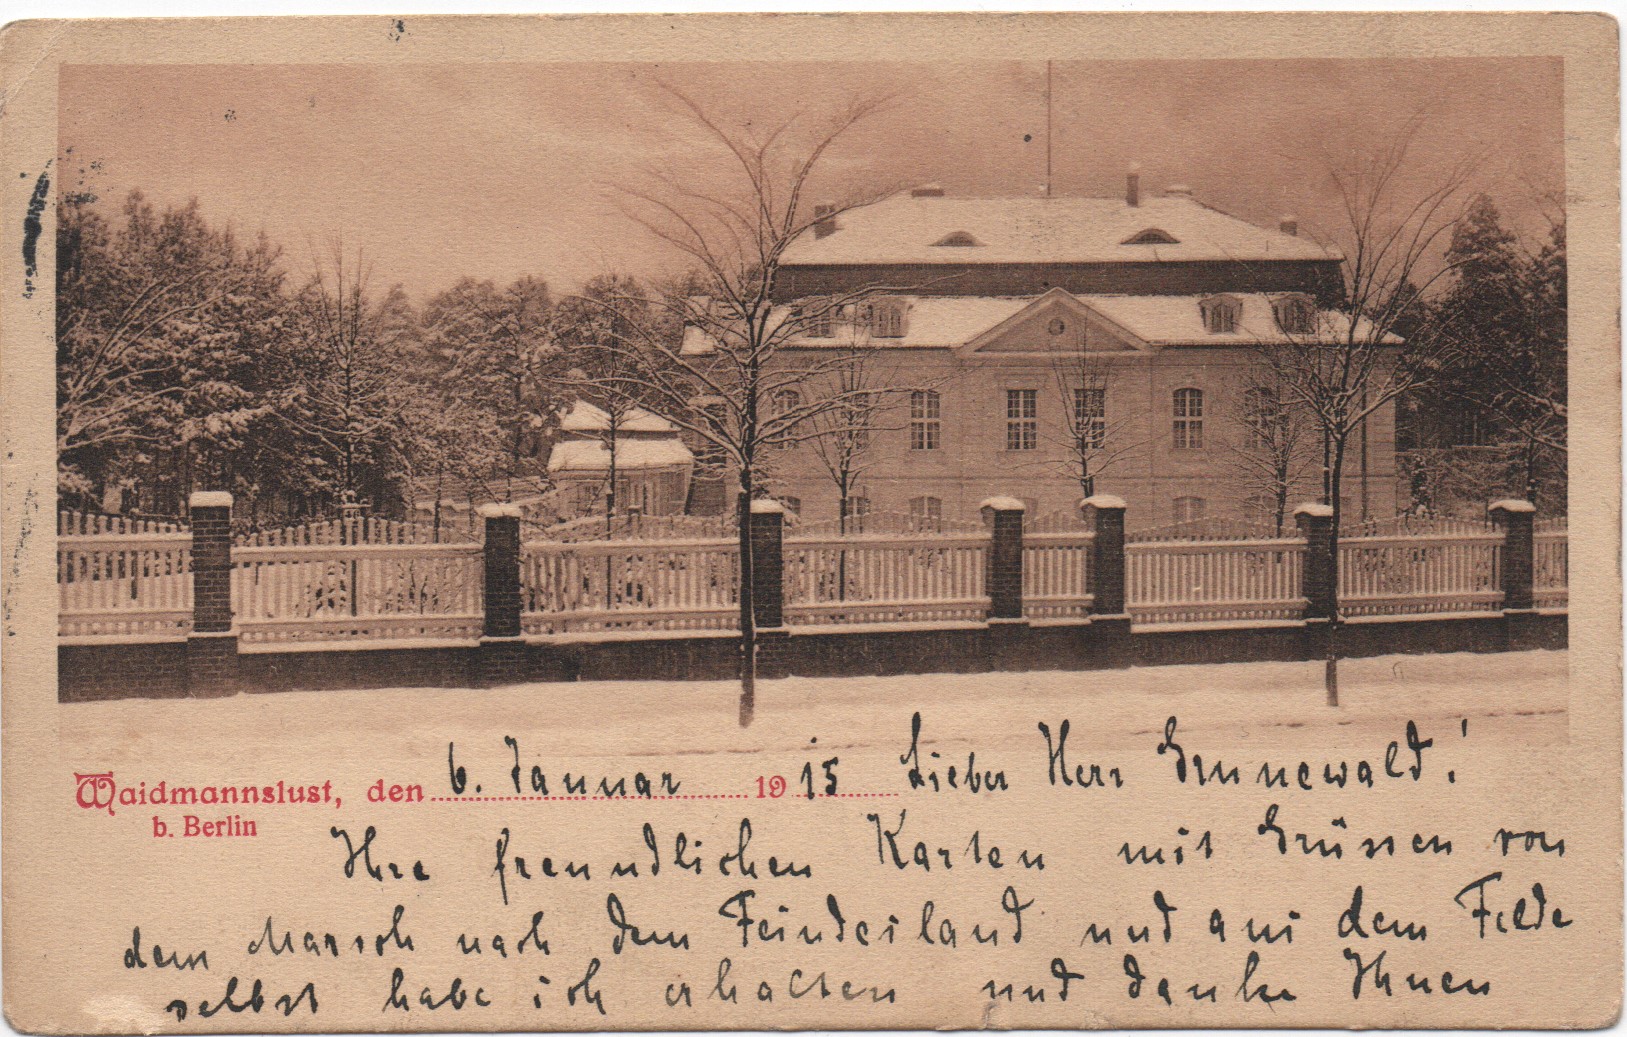 Waidmannslust, den 6. Januar 1915 Lieber Herr Grunewald!
b. Berlin
Ihre freundlichen Karten mit Grüssen von
dem Marsch nach dem Feindesland und aus dem Felde
selbst habe ich erhalten und danke Ihnen